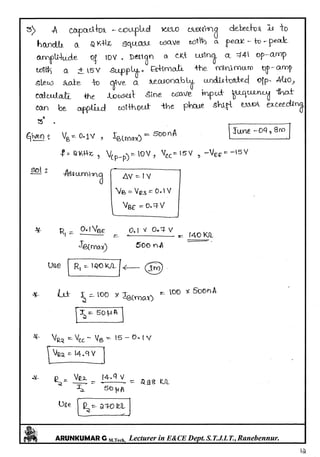 3) A capacitor - coupled zero crossing detector is to
handle a 2KHz square wave with a peak - to - peak
amplitude of 10V. Design a ckt using a 741 op-amp
with a ± 15V supply. Estimate the minimum op-amp
slew rate to give a reasonably undistorted o/p. Also,
calculate the lowest sine wave input frequency that
can be applied without the phase shift error exceeding
3°.
June - 09, 8m
Given : VB = 0.1V , IB(max) = 500nA
f = 2KHz , V(p-p) = 10V , Vcc = 15V , -VEE = -15V
Sol : Assuming
ΔV = 1V
VB = VR3 = 0.1V
VBE = 0.7V
* R1 = 0.1VBE / IB(max) = 0.1 x 0.7V / 500nA = 140KΩ
Use R1 = 120KΩ ← 1m
* Let I2 = 100 x IB(max) = 100 x 500nA
I2 = 50µA
* VR2 = Vcc - VB = 15 - 0.1V
VR2 = 14.9V
* R2 = VR2 / I2 = 14.9V / 50µA = 298KΩ
Use R2 = 270KΩ
ARUNKUMAR G M.Tech, Lecturer in E&CE Dept. S.T.J.I.T., Ranebennur.
12